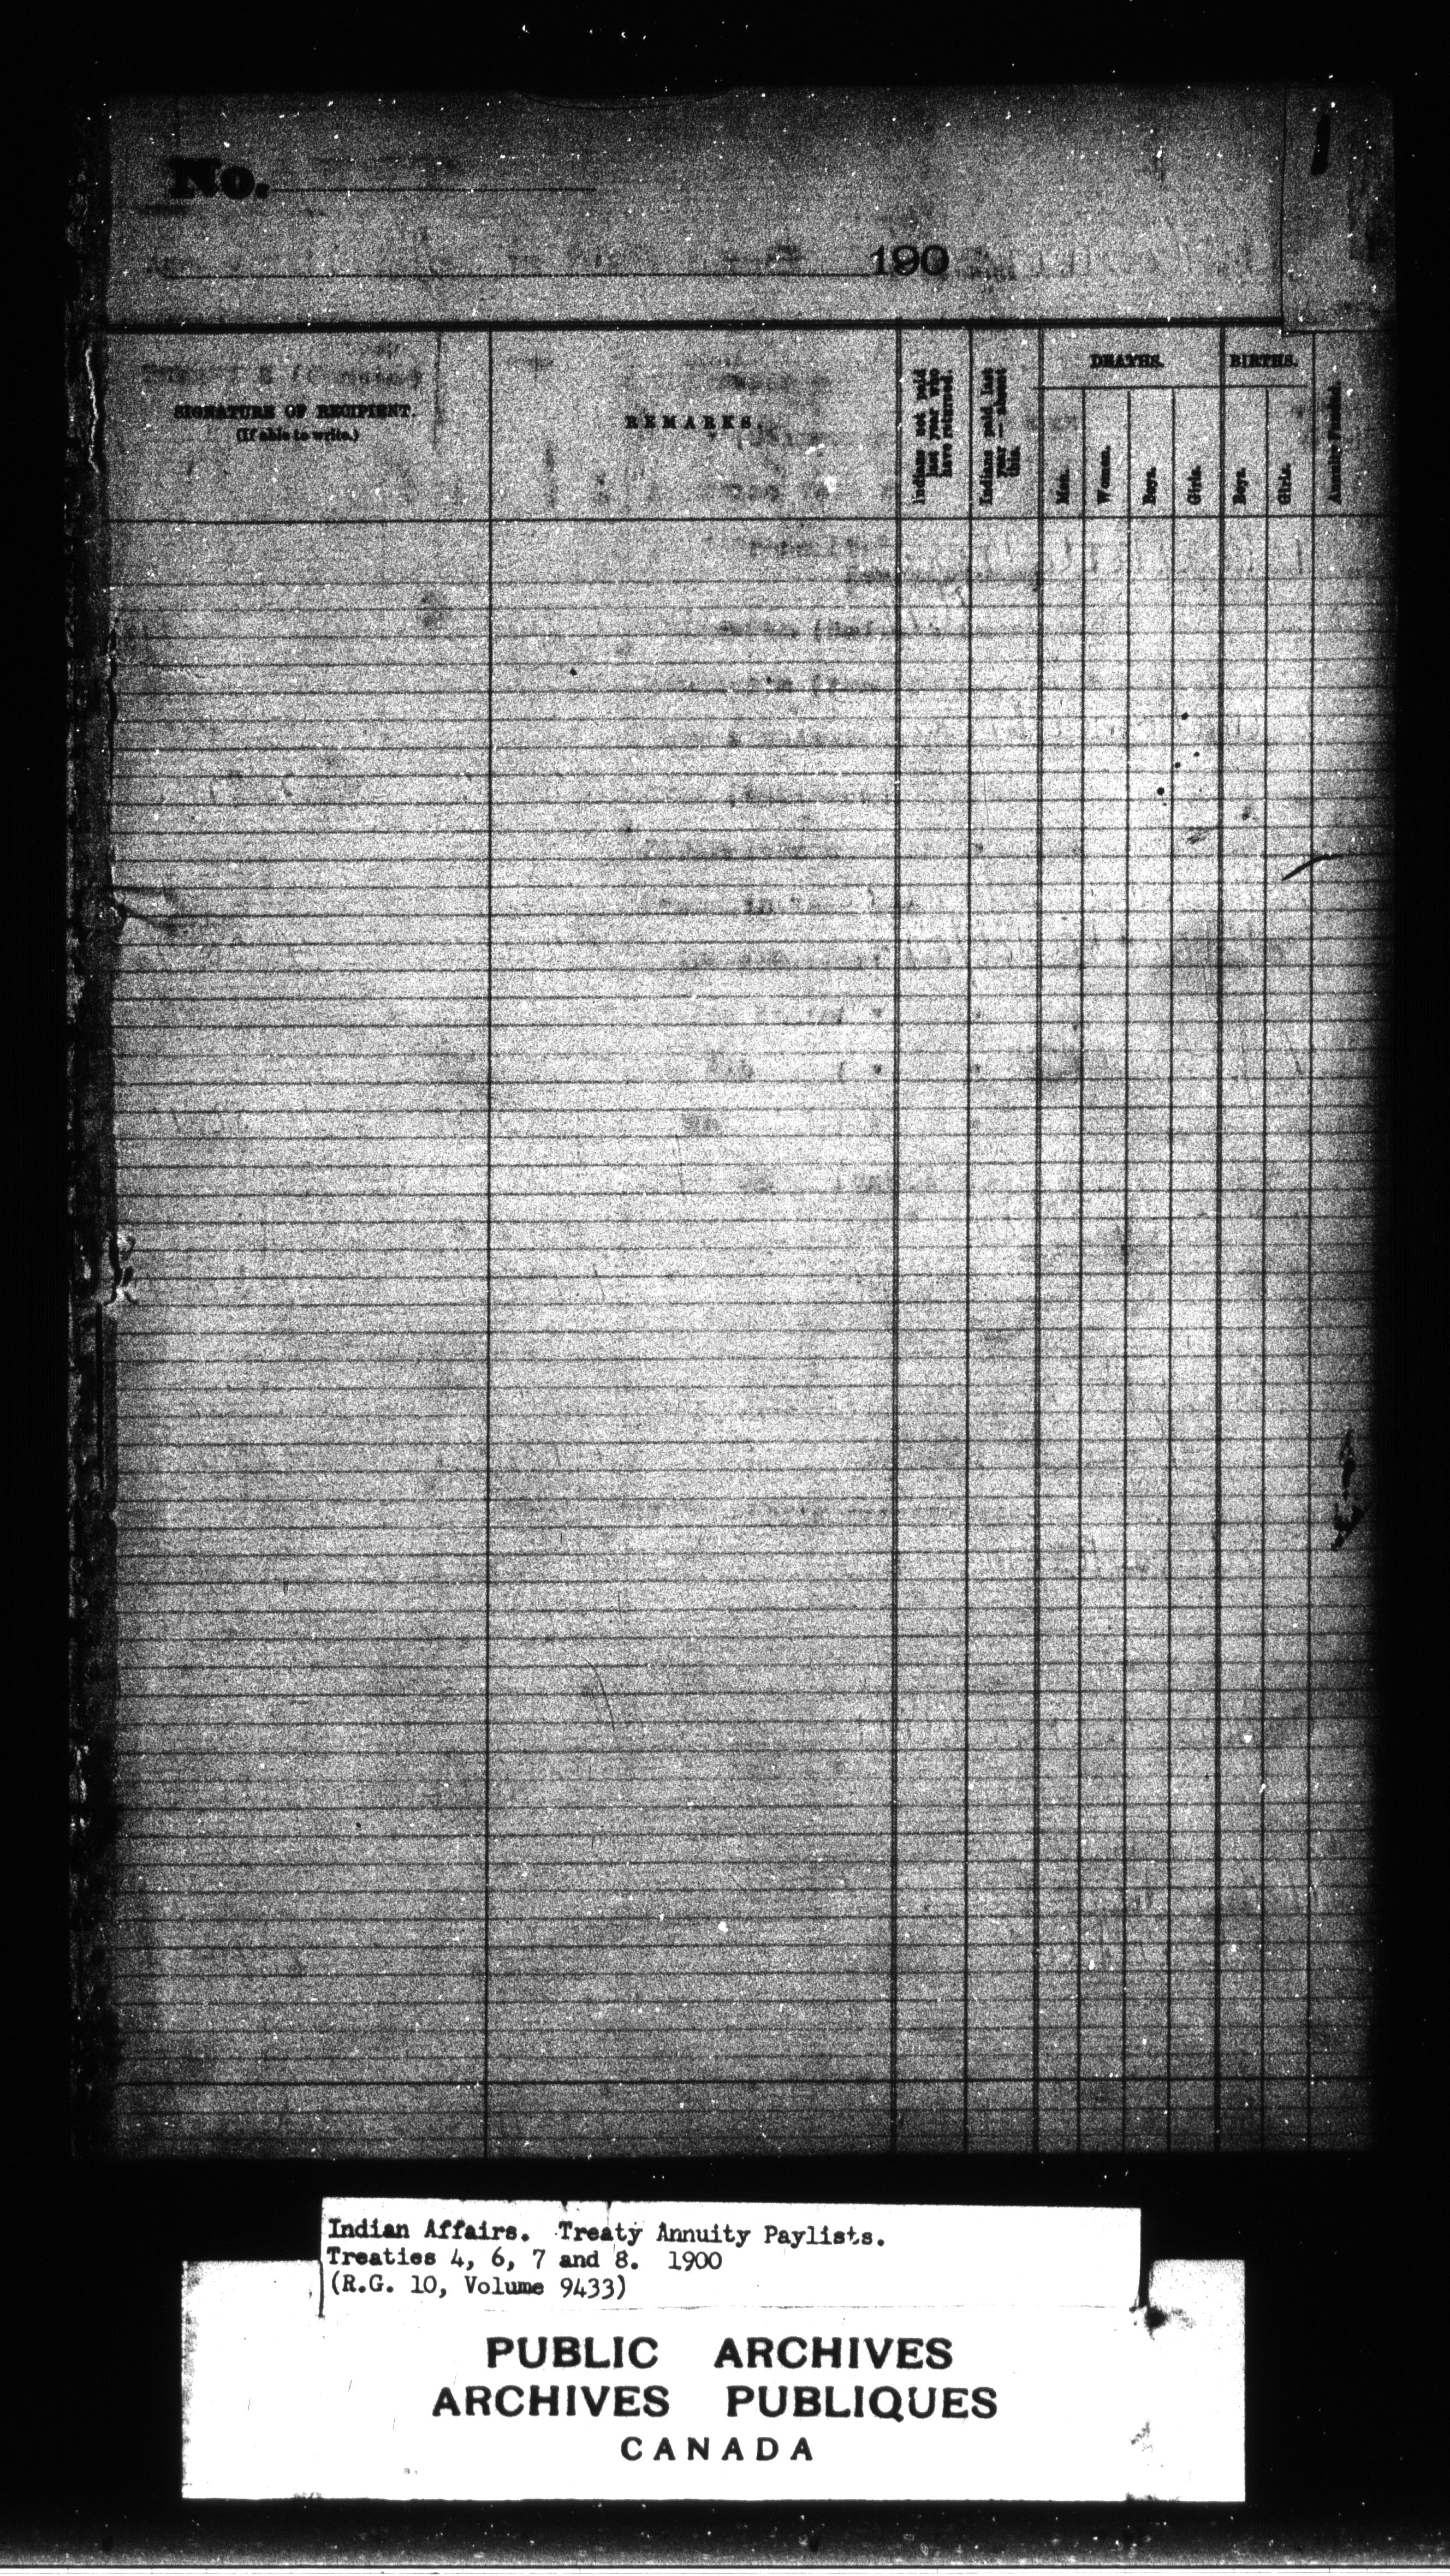 No.
190
SIGNATURE OF RECIPIENT.
(If able to write.)
REMARKS.
Indians not paid
last year who
have returned.
Indians paid last
year — absent
this.
DEATHS.
Men.
Women.
Boys.
Girls.
BIRTHS.
Boys.
Girls.
Annuity Funded.
Indian Affairs. Treaty Annuity Paylists.
Treaties 4, 6, 7 and 8. 1900
(R.G. 10, Volume 9433)
PUBLIC ARCHIVES
ARCHIVES PUBLIQUES
CANADA